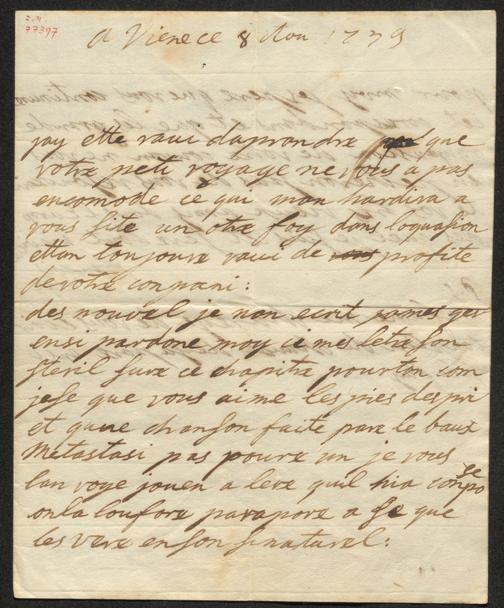 2.N.
77397
A Vienece 8 Aou 1779
jay ette ravi daprandre que
votre peti voyage ne vous a pas
encomode ce qui man hardira a
vous fite un otre foy dans loquasion
ettan toujoure ravi de profite
de votre conpani:
des nouvel je nan ecrit james
ensi pardone moy ci mes letre son
steril sure ce chapitre pourtan com
je se que vous aime les pies despri
et qune chanson faite pare le baux
Metastasi pas poure un je vous
lan voye jouen a lere quil hia conpo
se
onla loufore parapore a se que
les vere enson si naturel: